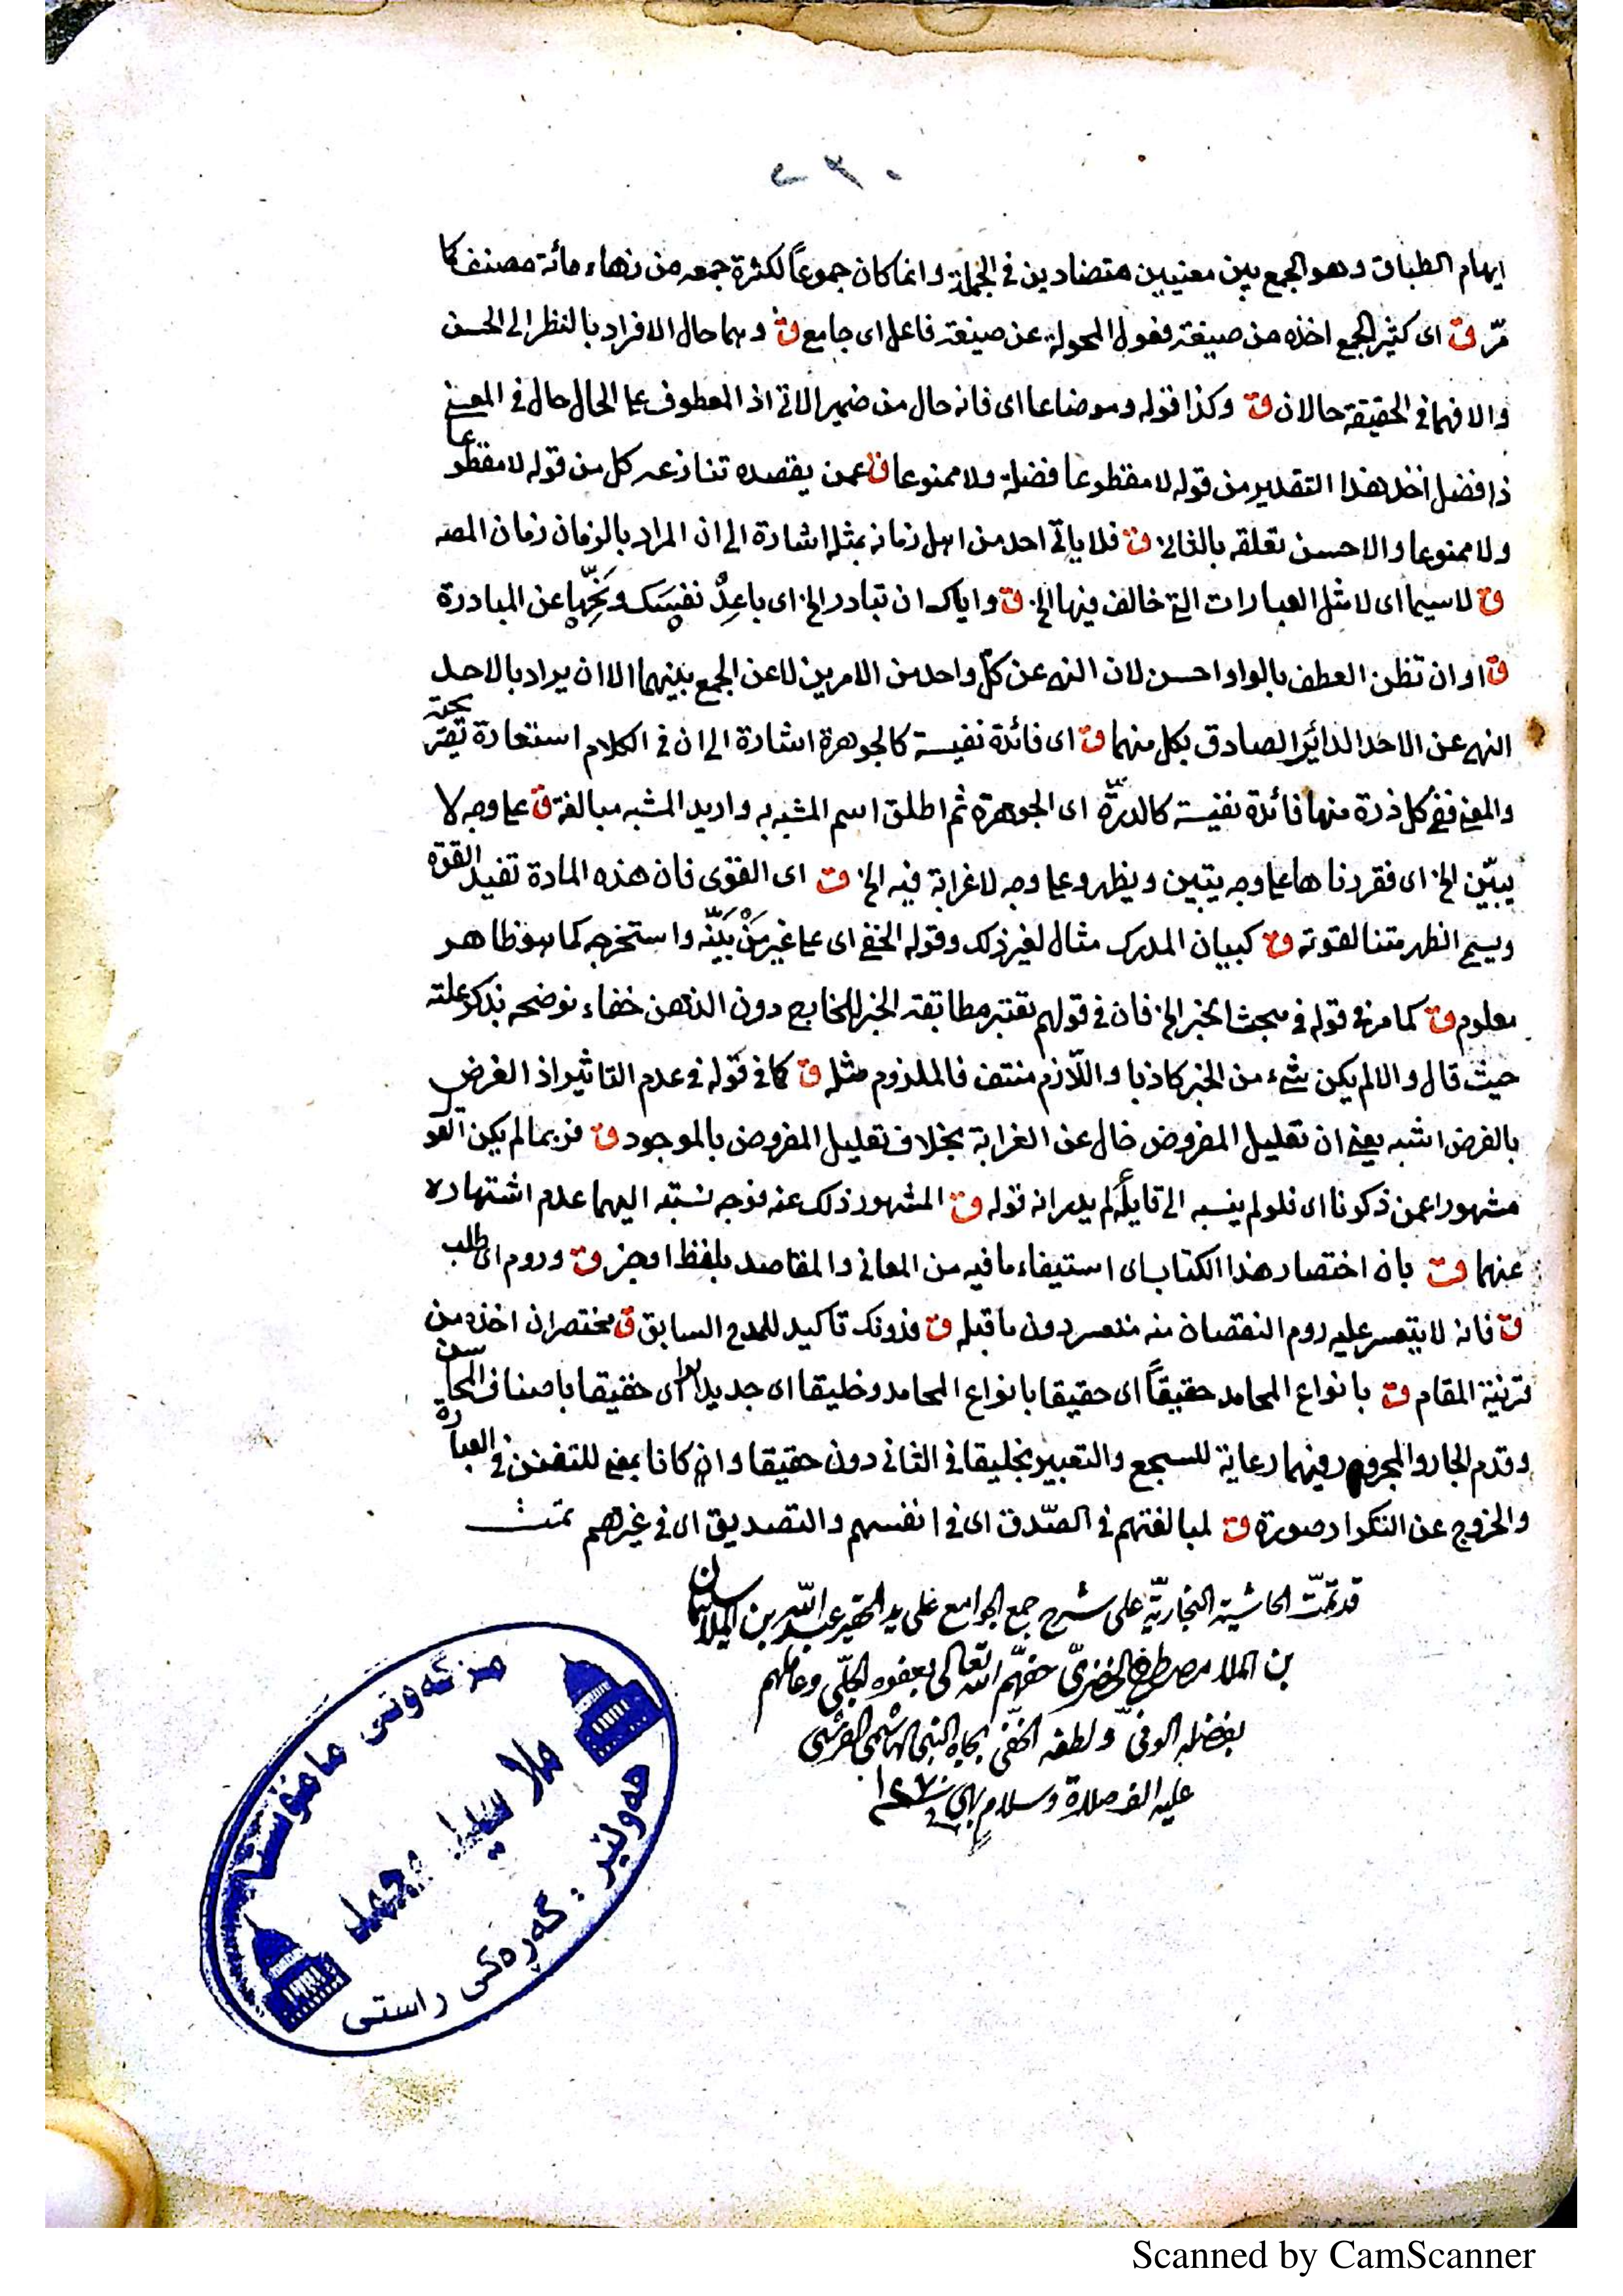 ٢٣٠
ايهام الطباق وهو الجمع بين معنيين متضادين في الجملة وانما كان جموعاً لكثرة جمعه من زهاء مائة مصنف كما
مرّ ق اى كثير الجمع اخذه من صيغة فعول المحولة عن صيغة فاعل اى جامع ق وهما حال الافراد بالنظر الى الحسن
والا فهما في الحقيقة حالان ق وكذا قوله وموضاعا اى فانه حال من ضمير الاتى اذ المعطوف على الحال حال في المعنى
ذا فضل اخذ هذا التقدير من قوله لا مقطوعا فضله ولا ممنوعا ق عمن يقصده تنازعه كل من قوله لا مقطوعا
ولا ممنوعا والاحسن تعلقه بالثانى ق فلا ياتى احد من اهل زمانه بمثله اشارة الى ان المراد بالزمان زمان المصه
ق لا سيما اى لا مثل العبارات التى خالف فيها الخ ق واياك ان تبادر الخ اى باعِدْ نفسَك ونَحِّها عن المبادرة
ق او ان تظن العطف بالواو احسن لان النهى عن كلّ واحد من الامرين لا عن الجمع بينهما الا ان يراد بالاحد
النهى عن الاحد الدائر الصادق بكل منهما ق اى فائدة نفيسة كالجوهرة اشارة الى ان في الكلام استعارة تصريحية
والمعنى ففى كل ذرة منها فائدة نفيسة كالدرّة اى الجوهرة ثم اطلق اسم المشبه به واريد المشبه مبالغة ق على وجه لا
يبيّن الخ اى فقررناها على وجه يتبين ويظهر وعلى وجه لا غرابة فيه الخ ق اى القوى فان هذه المادة تفيد القوة
ويسمى الظهر متنا لقوته ق كبيان المدرك مثال لغير ذلك وقوله الخفى اى على غير مَنْ بَيَّنَه واستخرجه كما هو ظاهر
معلوم ق كما مر في قوله في مبحث الخبر الخ فان في قولهم تعتبر مطابقة الخبر للخارج دون الذهن خفاء نوضحه بذكر علته
حيث قال والا لم يكن شىء من الخبر كاذبا واللّازم منتف فالملزوم مثله ق كما في قوله في عدم التاثير اذ الفرض
بالفرض اشبه يعنى ان تعليل المفروض خال عن الغرابة بخلاف تعليل المفروض بالموجود ق فربما لم يكن القول
مشهورا عمن ذكرنا اى فلو لم ينسبه الى قايله لم يدر انه قوله ق المشهور ذلك عنه فوجه نسبته اليهما عدم اشتهاره
عنهما ق بان اختصار هذا الكتاب اى استيفاء ما فيه من المعانى والمقاصد بلفظ اوجز ق وروم اى طلب
ق فانه لا يتعسر عليه روم النقصان منه متعسر دون ما قبله ق فدونك تاكيد للمدح السابق ق مختصرا اخذه من
قرينة المقام ق بانواع المحامد حقيقاً اى حقيقا بانواع المحامد وخليقا اى جديرا اى حقيقا باصناف المحاسن
وقدم الجار والمجرور فيهما رعاية للسجع والتعبير بخليقا في الثانى دون حقيقا وان كانا بمعنى للتفنن في العبارة
والخروج عن التكرار صورة ق لمبالغتهم في الصّدق اى في انفسهم والتصديق اى في غيرهم تمت
قد تمّت الحاشية النجاريّة على شرح جمع الجوامع على يد الحقير عبد الله بن الملا سليمان
بن الملا مصطفى الخضريّ حفّهم الله تعالى بعفوه الجلّي وعاملهم
بفضله الوفيّ ولطفه الخفّي بجاه النبي الهاشمي القرشي
عليه الف صلاة وسلام ١٢٧٠
مزگەوتی مامۆستا
ملا سید محمد
هەولێر : گەڕەکی راستی
Scanned by CamScanner